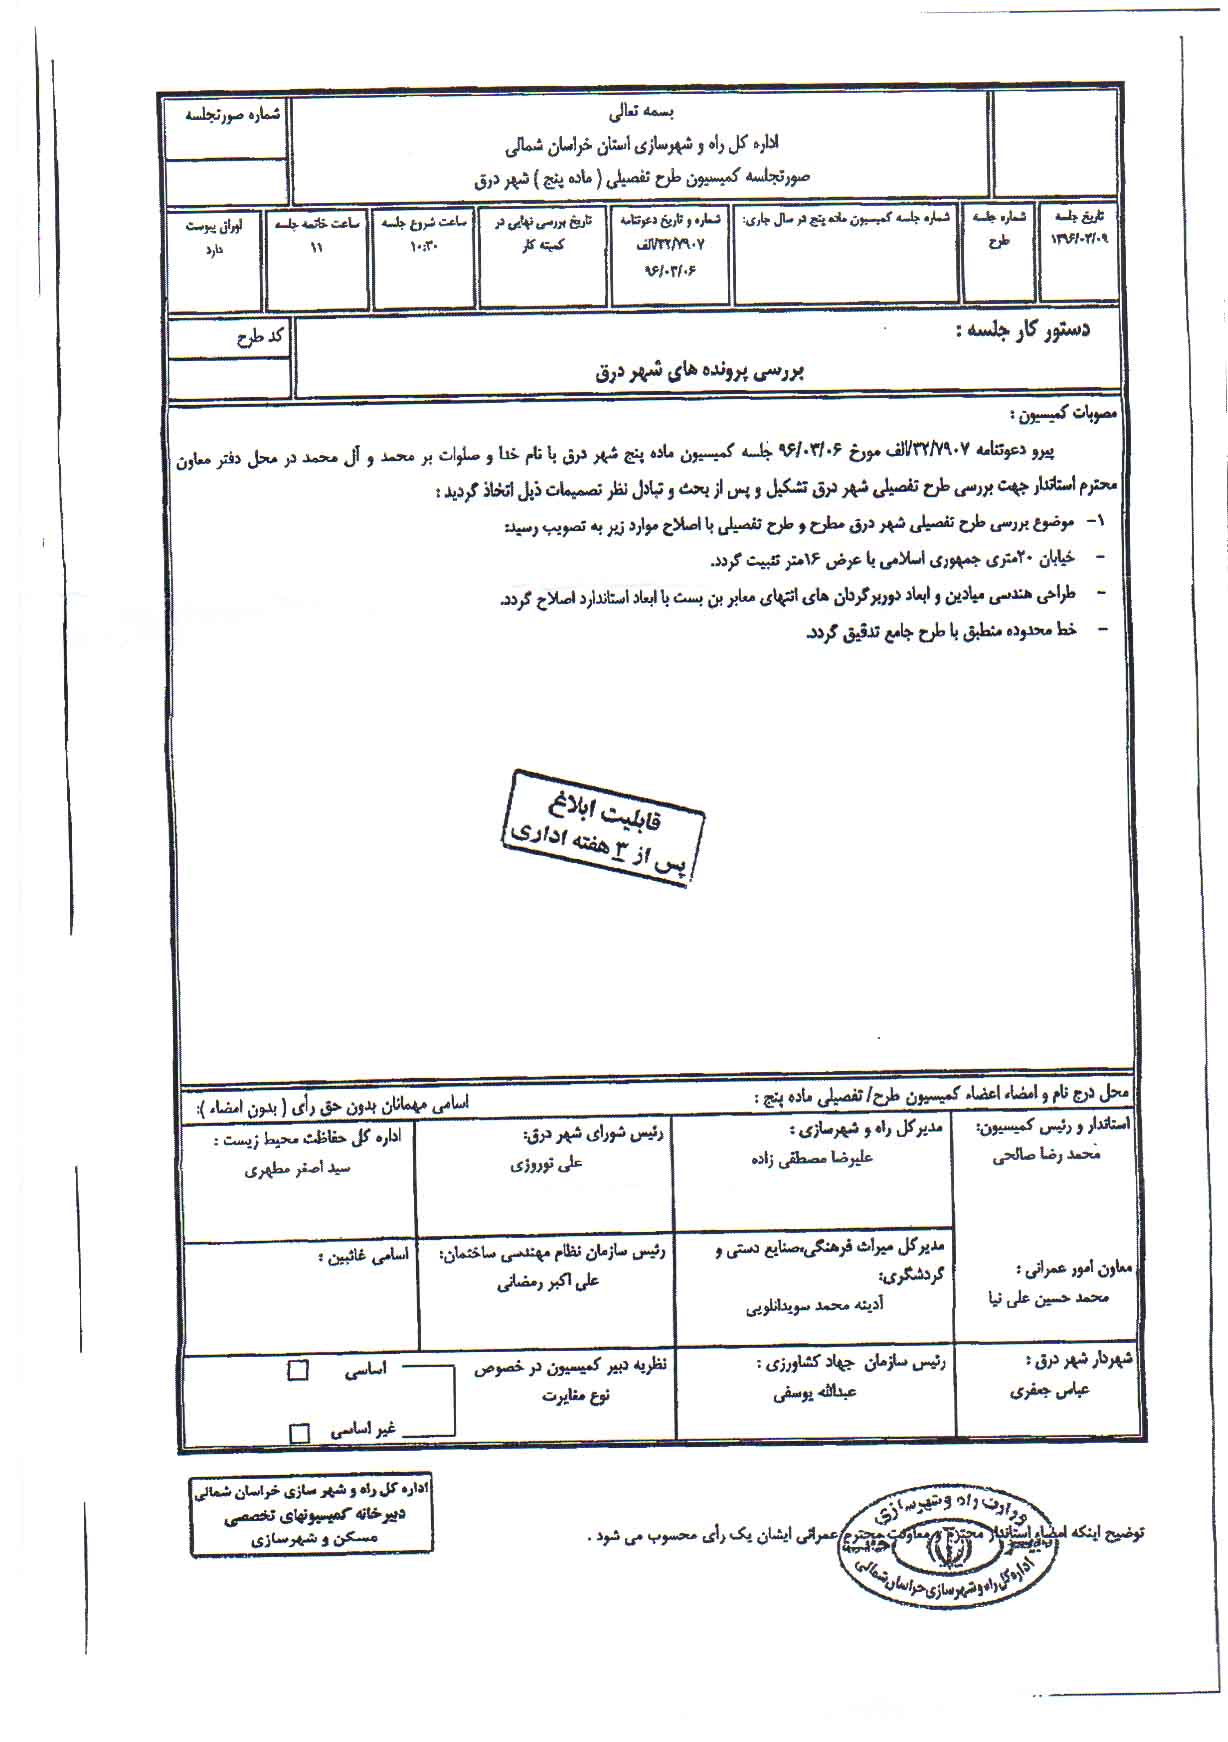 بسمه تعالی
اداره کل راه و شهرسازی استان خراسان شمالی
صورتجلسه کمیسیون طرح تفصیلی ( ماده پنج ) شهر درق
شماره صورتجلسه
تاریخ جلسه
۱۳۹۶/۰۳/۰۹
شماره جلسه
طرح
شماره جلسه کمیسیون ماده پنج در سال جاری:
شماره و تاریخ دعوتنامه
۳۲/۷۹۰۷/الف
۹۶/۰۳/۰۶
تاریخ بررسی نهایی در
کمیته کار
ساعت شروع جلسه
۱۰:۳۰
ساعت خاتمه جلسه
۱۱
اوراق پیوست
دارد
دستور کار جلسه :
بررسی پرونده های شهر درق
کد طرح
مصوبات کمیسیون :
پیرو دعوتنامه ۳۲/۷۹۰۷/الف مورخ ۹۶/۰۳/۰۶ جلسه کمیسیون ماده پنج شهر درق با نام خدا و صلوات بر محمد و آل محمد در محل دفتر معاون
محترم استاندار جهت بررسی طرح تفصیلی شهر درق تشکیل و پس از بحث و تبادل نظر تصمیمات ذیل اتخاذ گردید :
۱- موضوع بررسی طرح تفصیلی شهر درق مطرح و طرح تفصیلی با اصلاح موارد زیر به تصویب رسید:
- خیابان ۲۰متری جمهوری اسلامی با عرض ۱۶متر تثبیت گردد.
- طراحی هندسی میادین و ابعاد دوربرگردان های انتهای معابر بن بست با ابعاد استاندارد اصلاح گردد.
- خط محدوده منطبق با طرح جامع تدقیق گردد.
قابلیت ابلاغ
پس از ۳ هفته اداری
محل درج نام و امضاء اعضاء کمیسیون طرح/ تفصیلی ماده پنج :
اسامی مهمانان بدون حق رأی ( بدون امضاء ):
استاندار و رئیس کمیسیون:
محمد رضا صالحی
معاون امور عمرانی :
محمد حسین علی نیا
مدیرکل راه و شهرسازی :
علیرضا مصطفی زاده
رئیس شورای شهر درق:
علی نوروزی
اداره کل حفاظت محیط زیست :
سید اصغر مطهری
مدیرکل میراث فرهنگی،صنایع دستی و
گردشگری:
آدینه محمد سویدانلویی
رئیس سازمان نظام مهندسی ساختمان:
علی اکبر رمضانی
اسامی غائبین :
شهردار شهر درق :
عباس جعفری
رئیس سازمان جهاد کشاورزی :
عبدالله یوسفی
نظریه دبیر کمیسیون در خصوص
نوع مغایرت
اساسی
غیر اساسی
توضیح اینکه امضاء استاندار محترم و معاونت محترم عمرانی ایشان یک رأی محسوب می شود .
وزارت راه و شهرسازی
اداره کل راه و شهرسازی خراسان شمالی
اداره کل راه و شهر سازی خراسان شمالی
دبیرخانه کمیسیونهای تخصصی
مسکن و شهرسازی